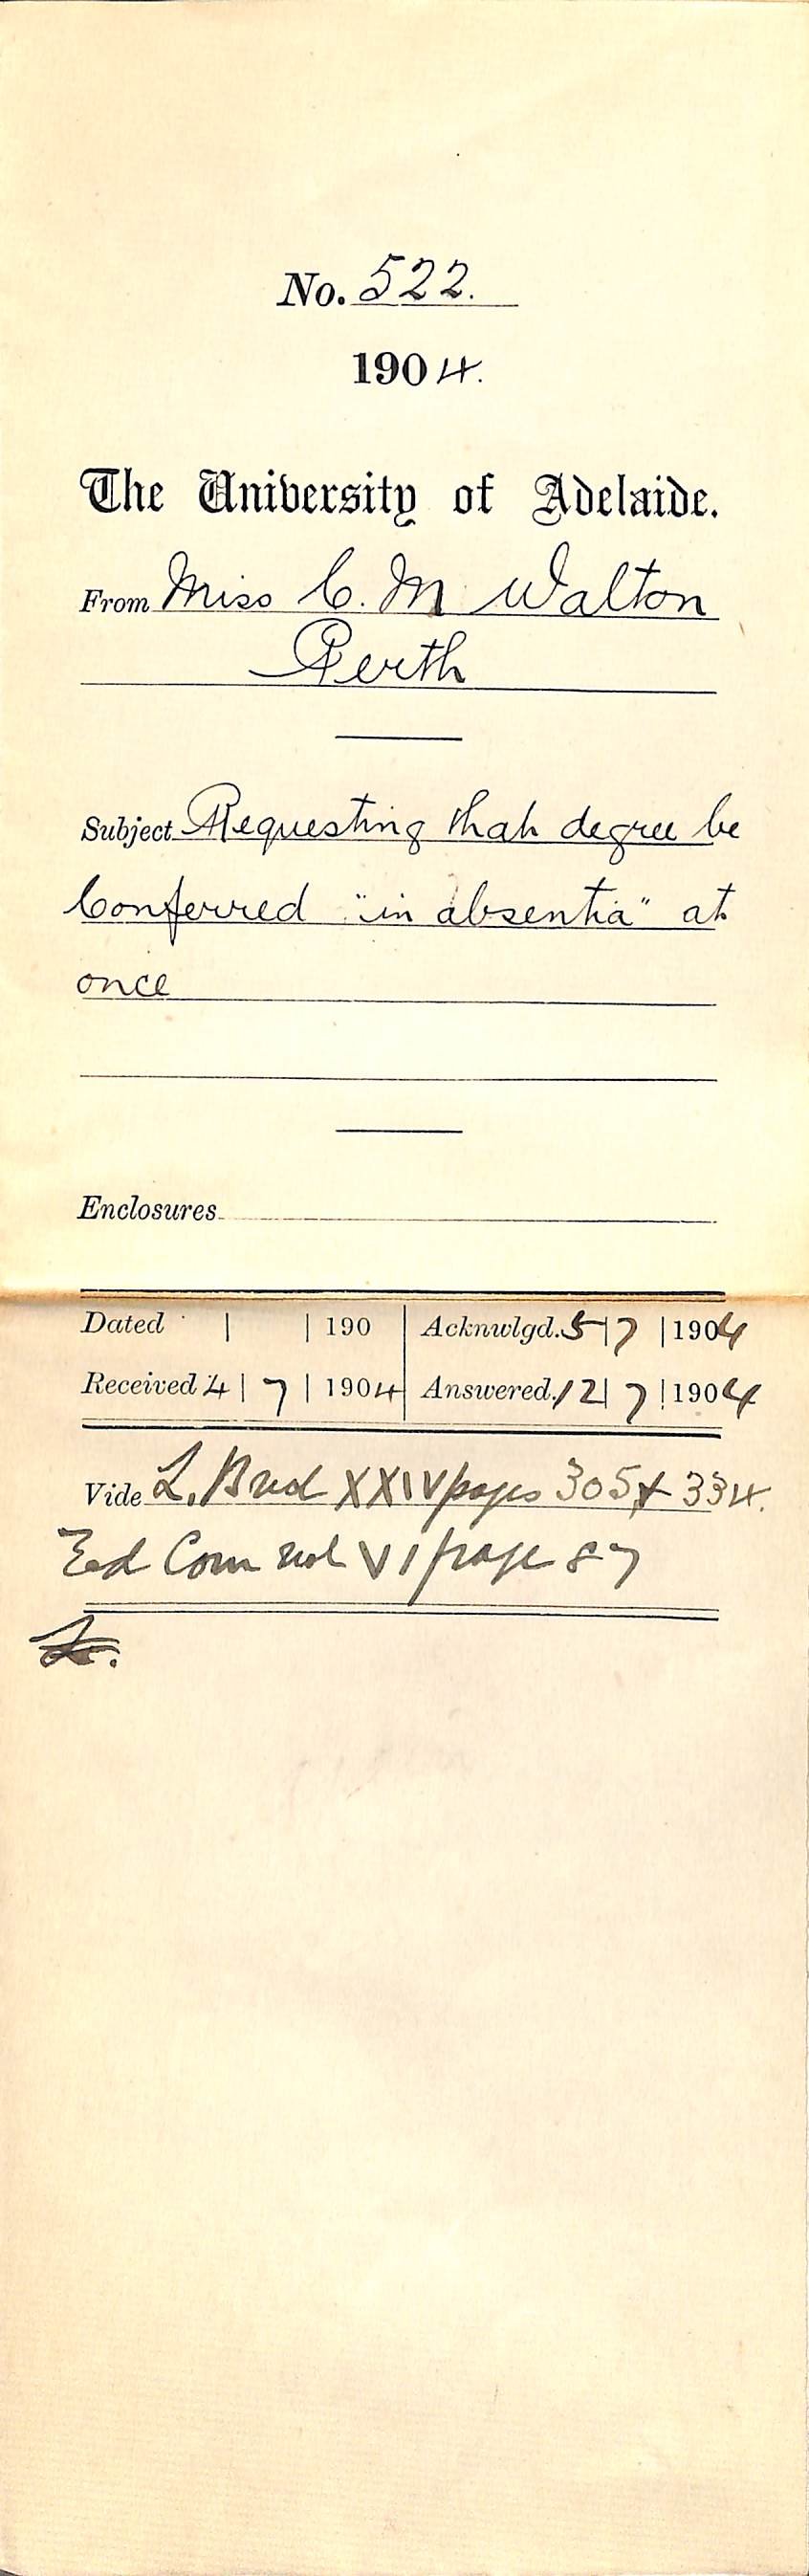 No. 522.
1904.
The University of Adelaide.
From Miss C. M. Walton
Perth
Subject Requesting that degree be
Conferred "in absentia" at
once
Enclosures
Dated | | 190 Acknwlgd. 5 | 7 | 1904
Received 4 | 7 | 1904 Answered. 12 | 7 | 1904
Vide L. XXIV pages 305 & 334.
Ed Com vol VI page 87